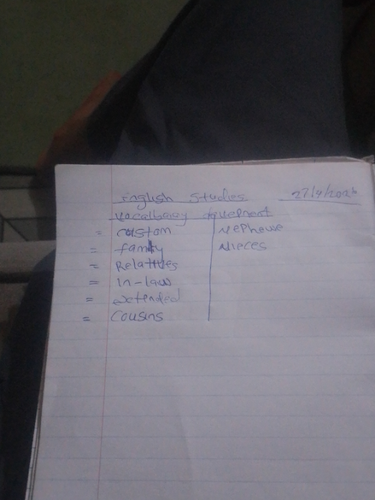 English Studies 27/4/2024
Vocabulary
= custom Nephews
= family Nieces
= Relatives
= in-law
= extended
= Cousins